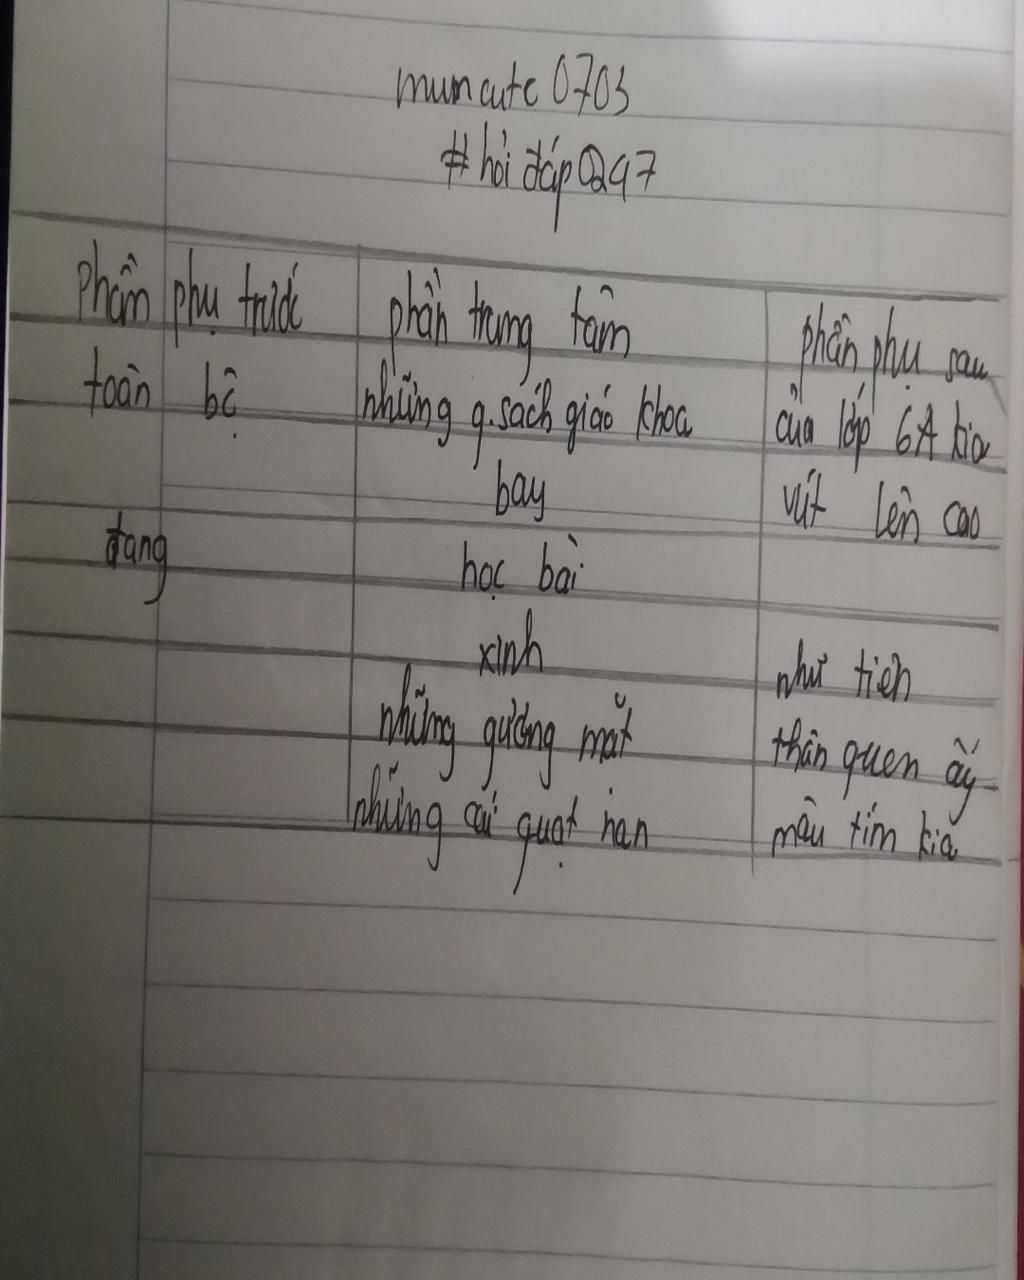 muncute 0703
#hỏi đáp 0247
phần phụ trước phần trung tâm phần phụ sau
toàn bộ những q.sách giáo khoa của lớp 6A kia
bay vút lên cao
đang học bài
xinh như tiên
những gương mặt thân quen ấy
những cái quạt nan màu tím kia